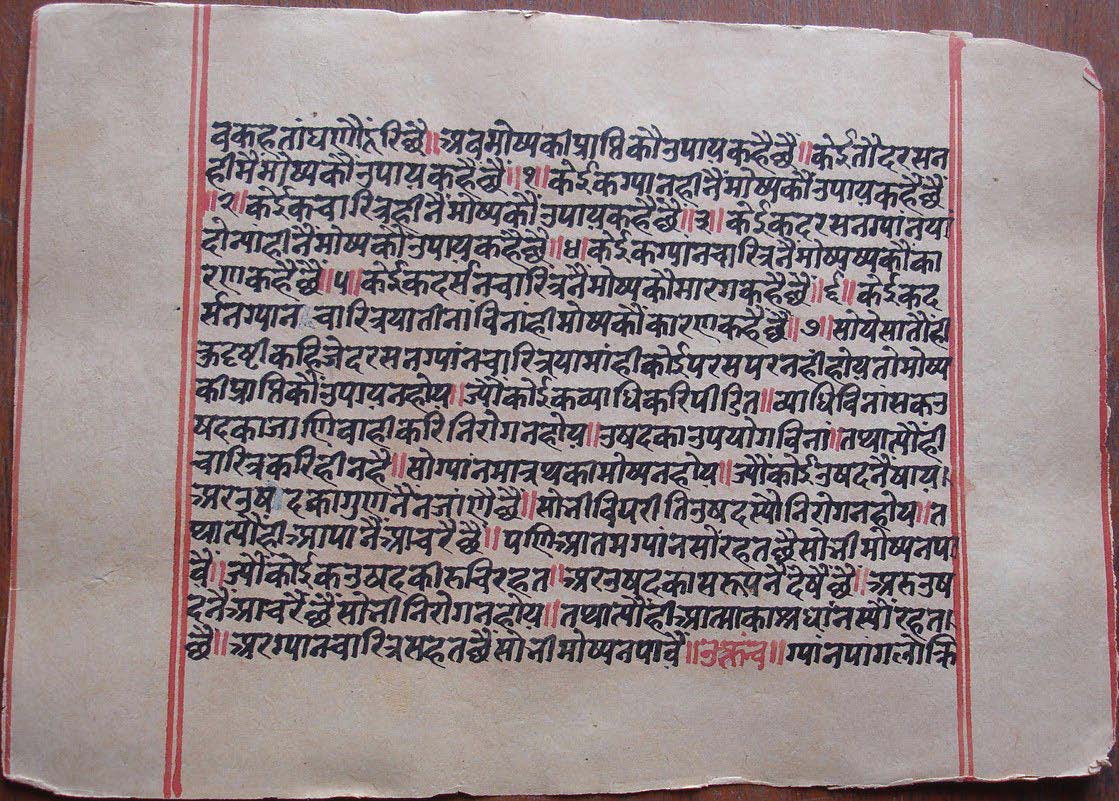 वकहतांघणौदूरिछै॥अवमोष्यकीप्राप्तिकौउपायकहैछैं॥केईतौदरसन
हीमैंमौष्यकौंउपायकहैछै॥१॥केईकग्यानहीनैंमोष्यकौंउपायकहैंछैं
॥२॥केईकचारित्रहीनैमोष्यकौउपायकहैछै॥३॥केईकदरसनग्यांनया
दोन्याहीनैमोष्यकौउपायकहैछै॥४॥केईकग्यानचारित्रनैमोष्यष्यकौका
रणकहैछैं॥५॥केईकदर्सनचारित्रनैमोष्यकौमारगकहैछैं॥६॥केईकद
र्सनग्यान चारित्रयातीनांविनांहीमोष्यकौंकारणकहैछै॥७॥सोयेसातौंही
कहिजेदरसनग्यांनचारित्रयामांहीकोईपरसपरनहीहोयतोमोष्य
कीप्राप्तिकौंउपायनहोय॥ज्यौकोईकव्याधिकरिपीडित॥व्याधिविनासकउ
षदकाजाणिवाहीकरिनिरोगनहोय॥उषदकाउपयोगविनां॥तथात्यौंही
चारित्रकरिहीनहै॥सोग्यांनमात्रथकीमोष्यनहोय॥ज्यौकोईउषदनैषाय
अरउष दकागुणनैनजाणैछै॥सोभीविपरीतिउषदस्यौनिरोगनहोय॥त
थात्यौहीआपानैंआचरैछै॥पणिआतमग्यांनसौंरहतछैसोभीमोष्यनपा
वै॥ज्यौंकोईकउषदकीरुचिरहत॥अरउषदकासरूपनैदेषैछै॥अरुउष
दनैंआचरैछैंसोभीनिरोगनहोय॥तथात्यौंहीआत्माकाश्रधांनस्यौंरहता
छै॥अरग्यानचारित्रसहतछैंसोभीमोष्यनपावै॥उक्तंच॥ग्यांनपागलोक्रि